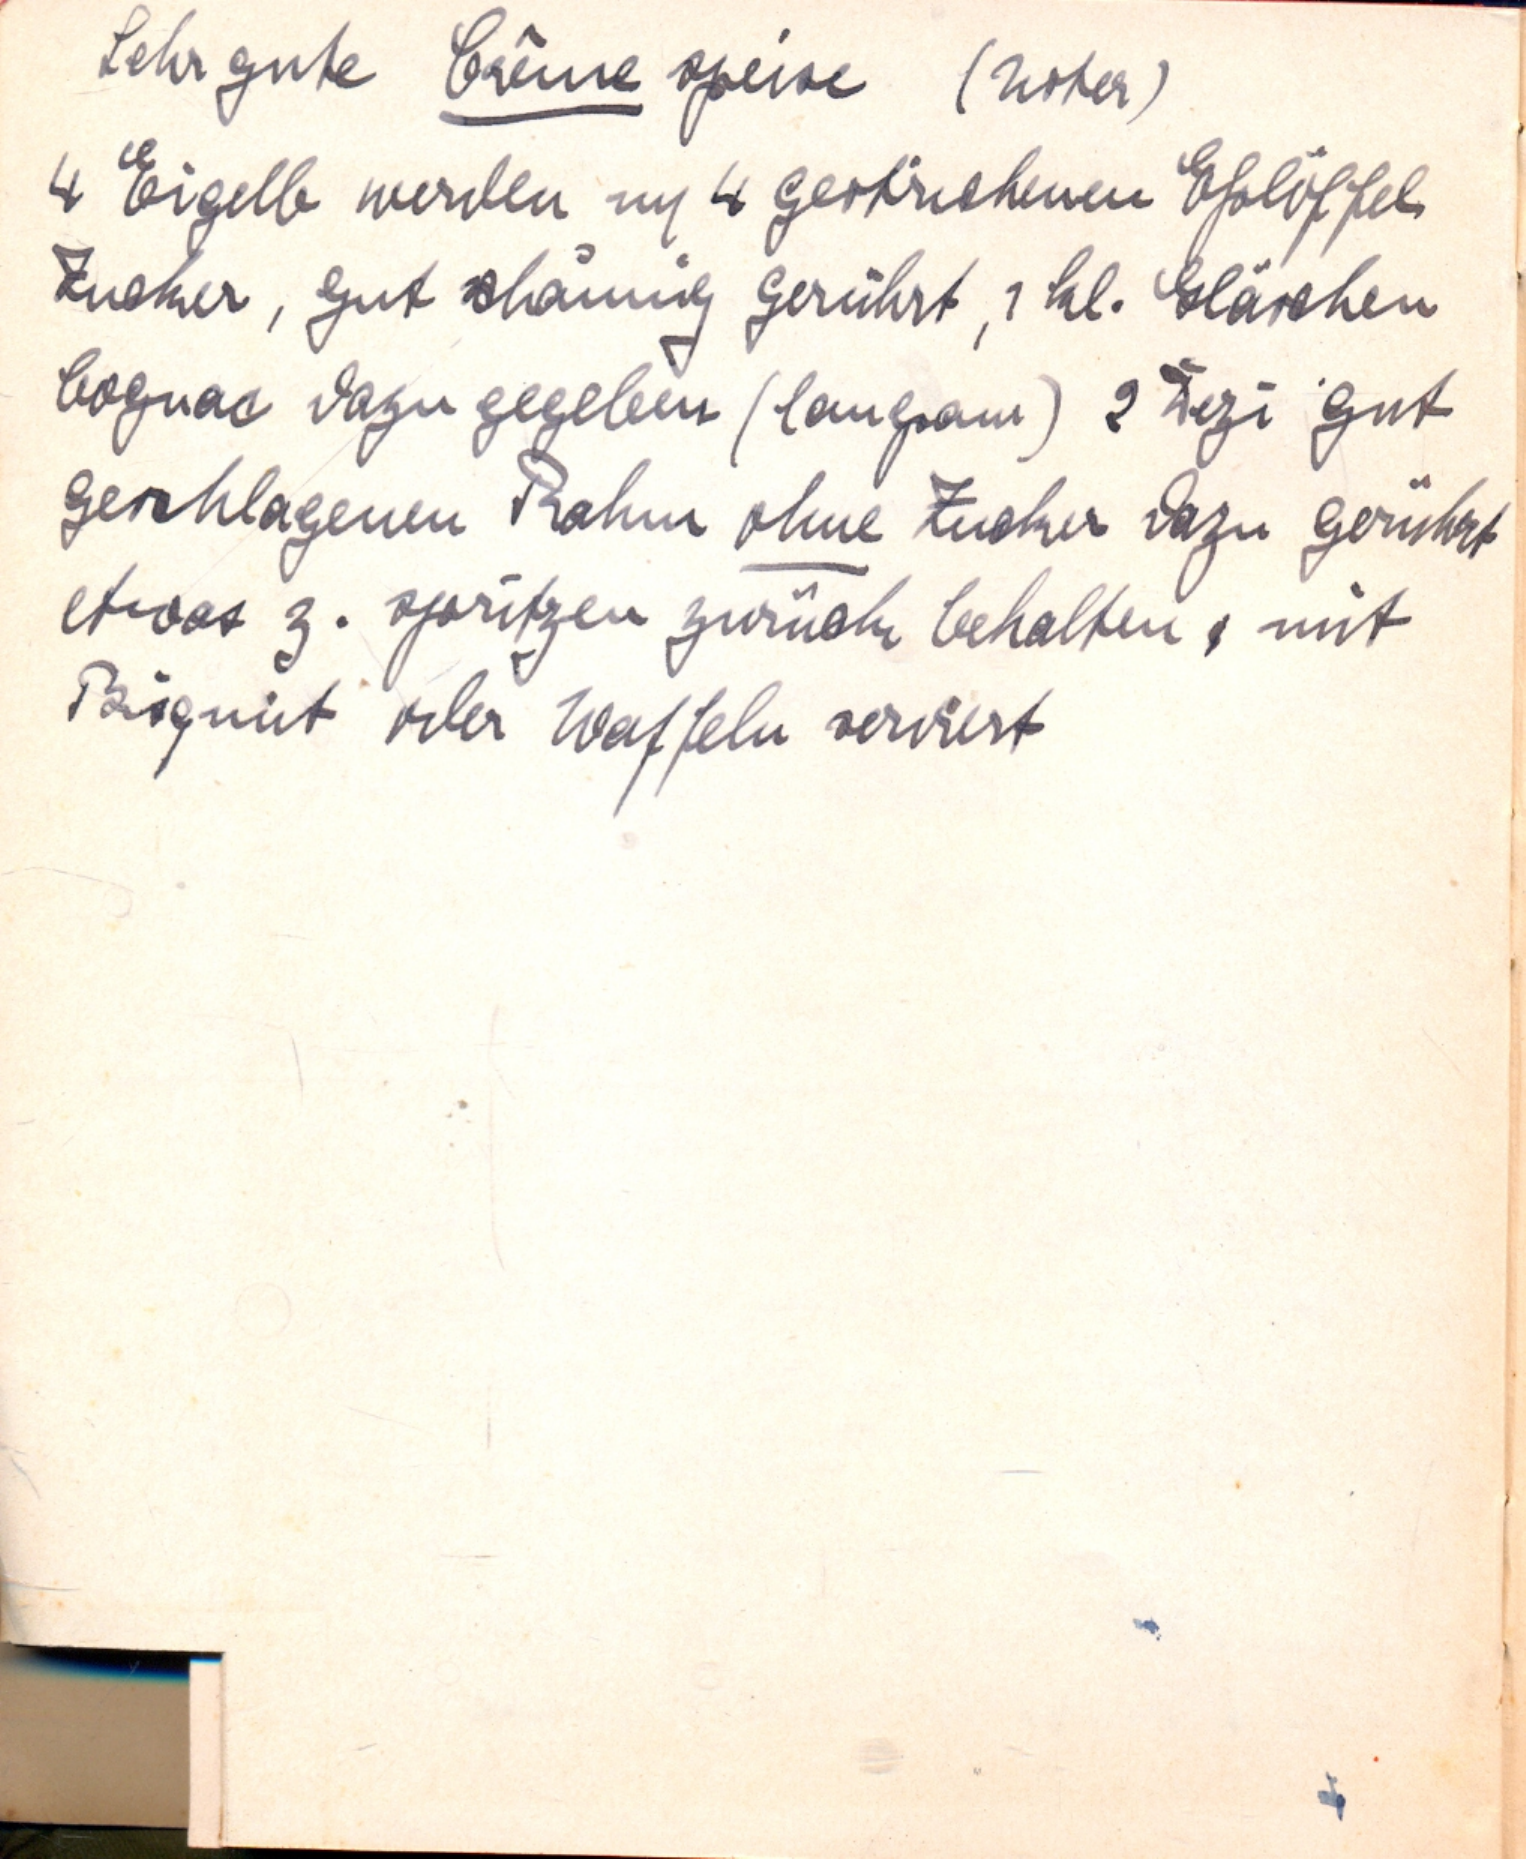 Sehr gute Crême speise (Noter)
4 Eigelb werden m 4 gestrichenen Eßlöffel
Zucker, gut schäumig gerührt, 1 kl. Gläschen
Cognac dazu gegeben (langsam) 2 Dezi gut
geschlagenen Rahm ohne Zucker dazu gerührt
etwas z. spritzen zurück behalten, mit
Bisquit oder Waffeln serviert